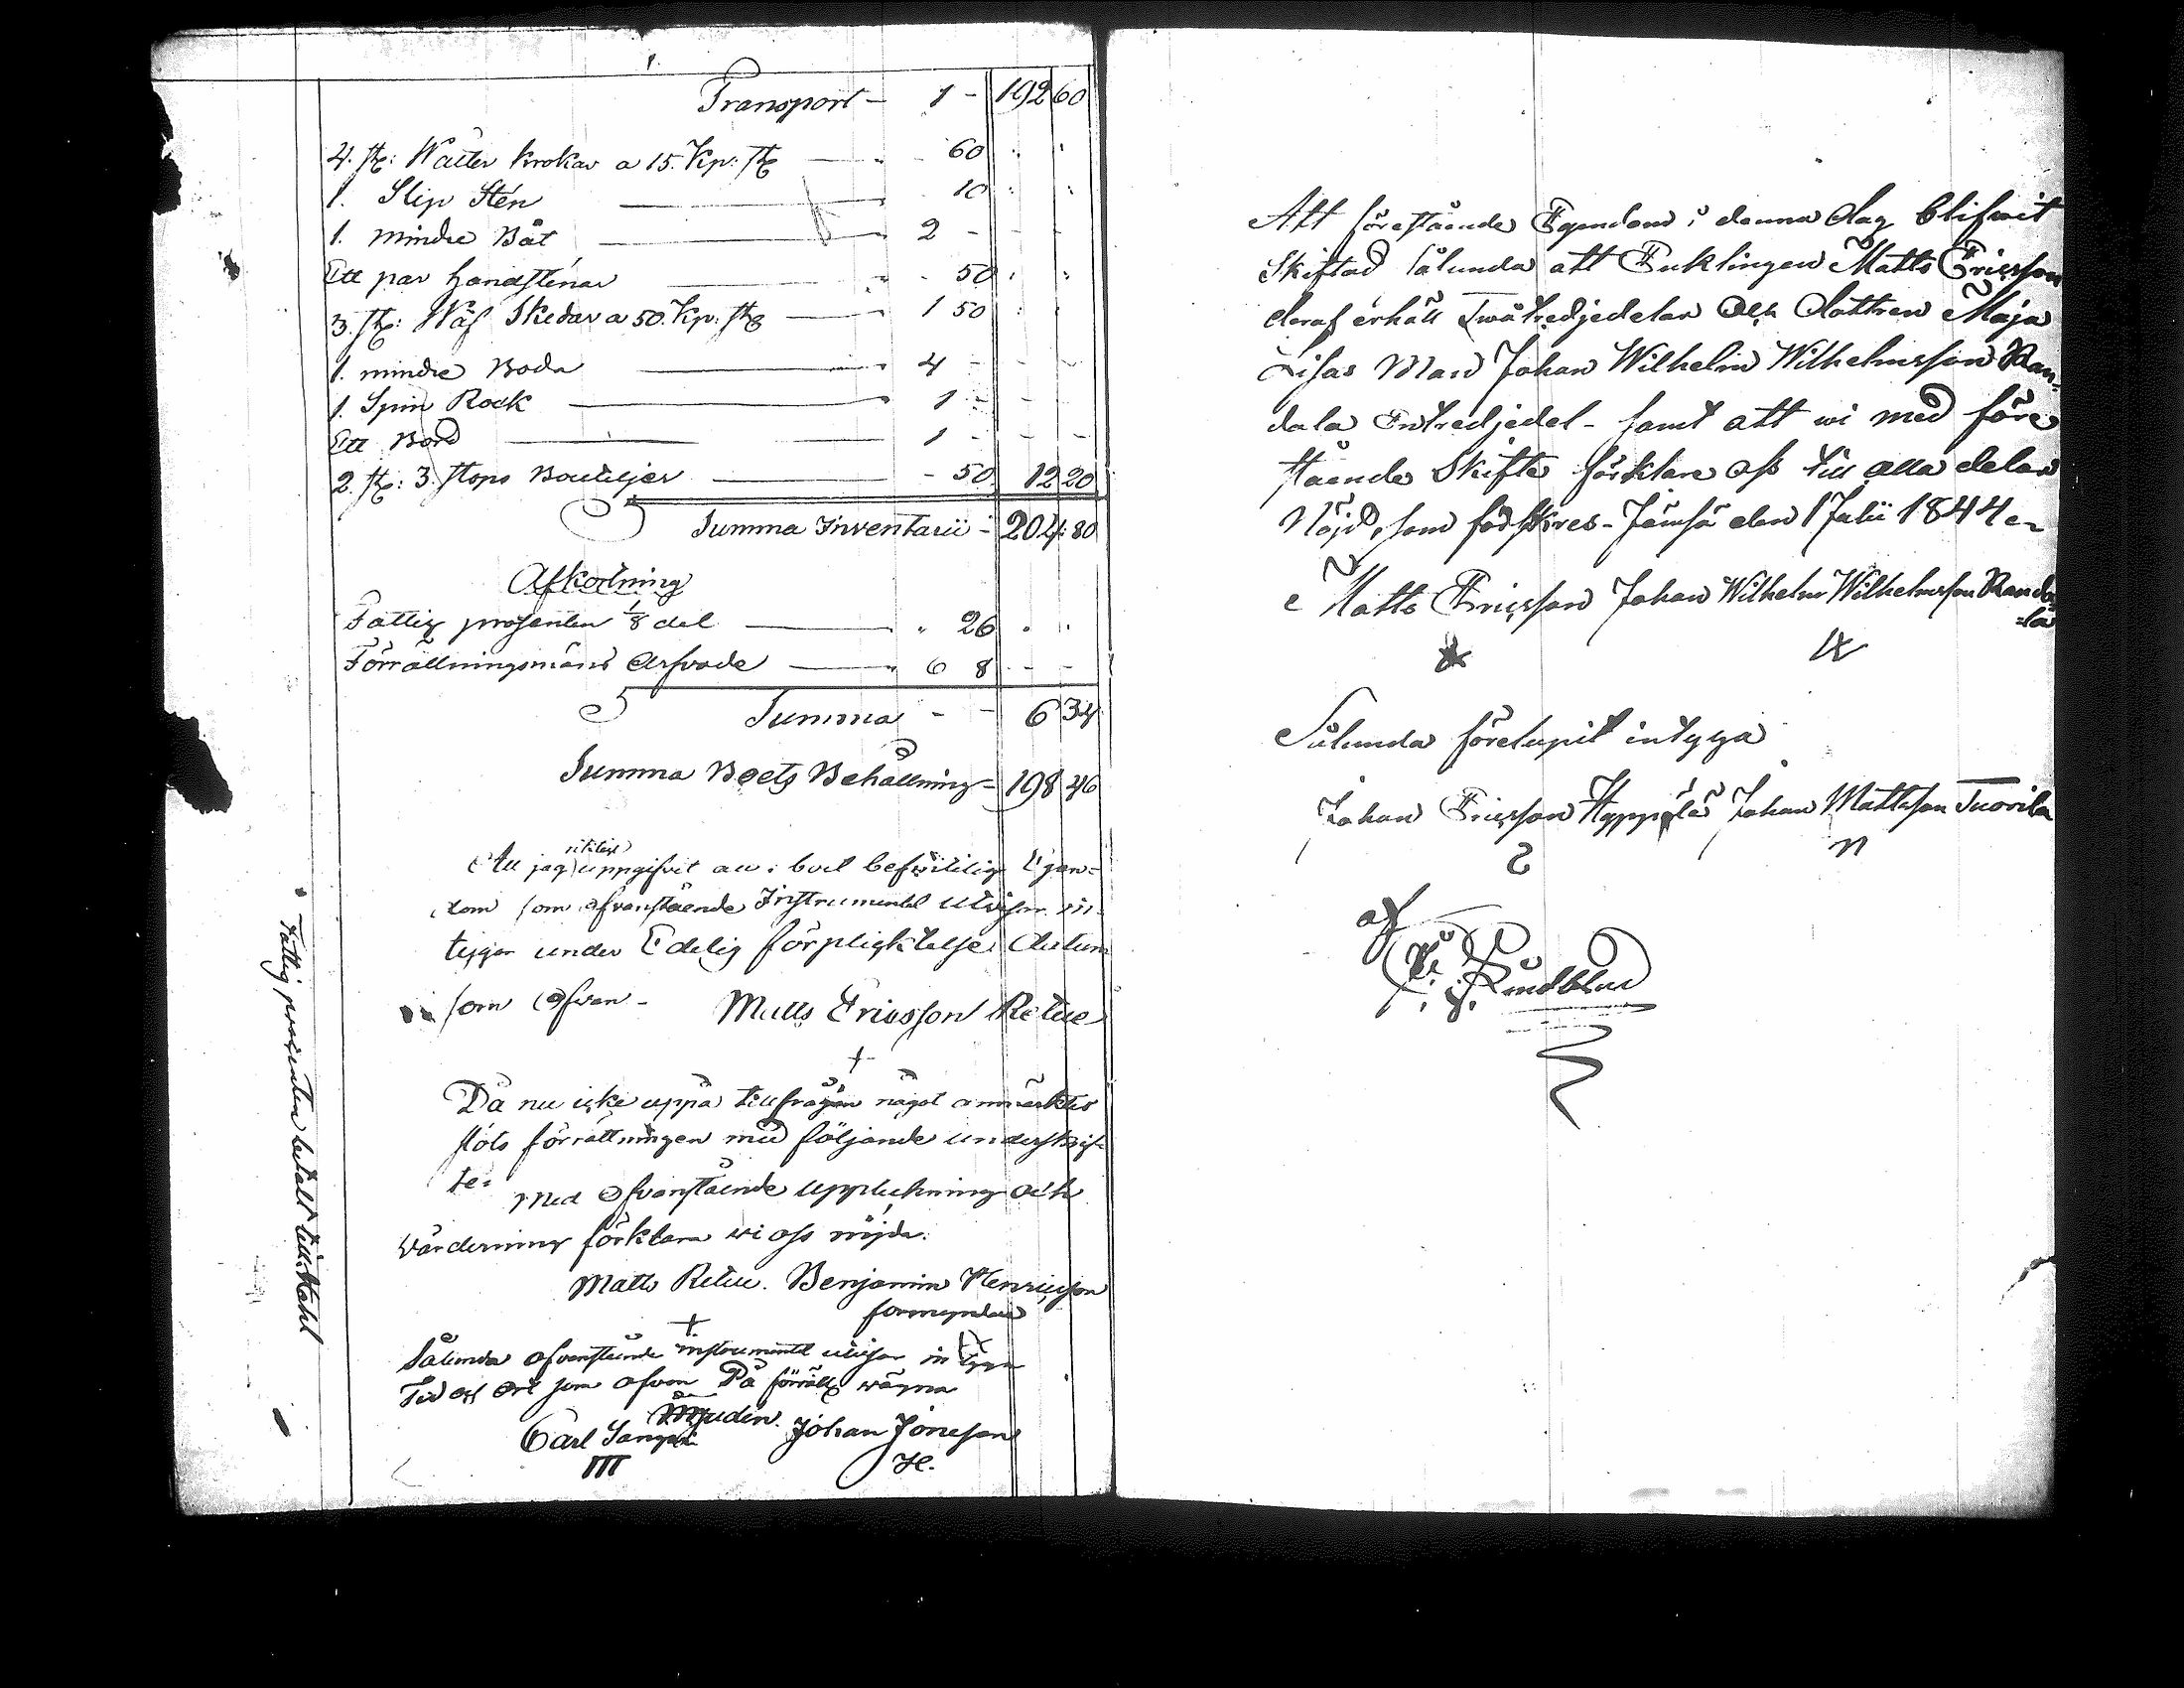 Transport - 1 - 192 60
4. st: Watten krokar a 15. Kp: st 60
1. Slip Sten 10
1. mindre Båt 2 -
Ett par handstenar 50
3. st: Wäf Skedar a 50. Kp: st 1 50
1. mindre Boda 4 -
1. Spin Rock 1 -
Ett Bord 1 -
2. st: 3. stops Bouteljer - 50 12 20
Summa Inventarii - 204: 80
Afkortning
Fattig prosenten 1/8 del 26
Förrättningsmäns Arfvode 6 8
Summa - - 6 34
Summa Boets Behållning - 198 46
Att jag uppgifvit all i boet befintlig Egen-
dom som ofvanstående Instrumentet utvisar in-
tygar under Edelig förpligktelse Datum
som ofvan - Matts Ericsson Retue
+
Då nu icke uppå tillfrågan något anmärktes
slöts förrättningen med följande underskrif-
ter Med ofvanstående uppteckning och
värdering förklara vi oss nöjda.
Matts Retue. Benjamin Henricsson
förmyndare
+
Sålunda ofvanstående instrumentet utvisar intyga
Tid och Ort som ofvan På förrätts vägna
Carl Johan Jönsson
III H.
Fattig procenten betalt till Stahl
Att förestående Egendom i denna dag blifvit
Skiftad sålunda att Enklingen Matts Ericsson
deraf erhåll twåtredjedelar Och dottren Maja
Lisas Man Johan Wilhelm Wilhelmsson Ran-
dala Entredjedel - samt att wi med före
stående Skifte förklare oss till alla delar
Nöjd, som förskres - Jämsä den 1 Julii 1844
Matts Ericsson Johan Wilhelm Wilhelmsson Randa
-la
Sålunda förelupit intyga
Johan Ericsson Hyppilä Johan Mattsson Tuovila
af
Sundblad